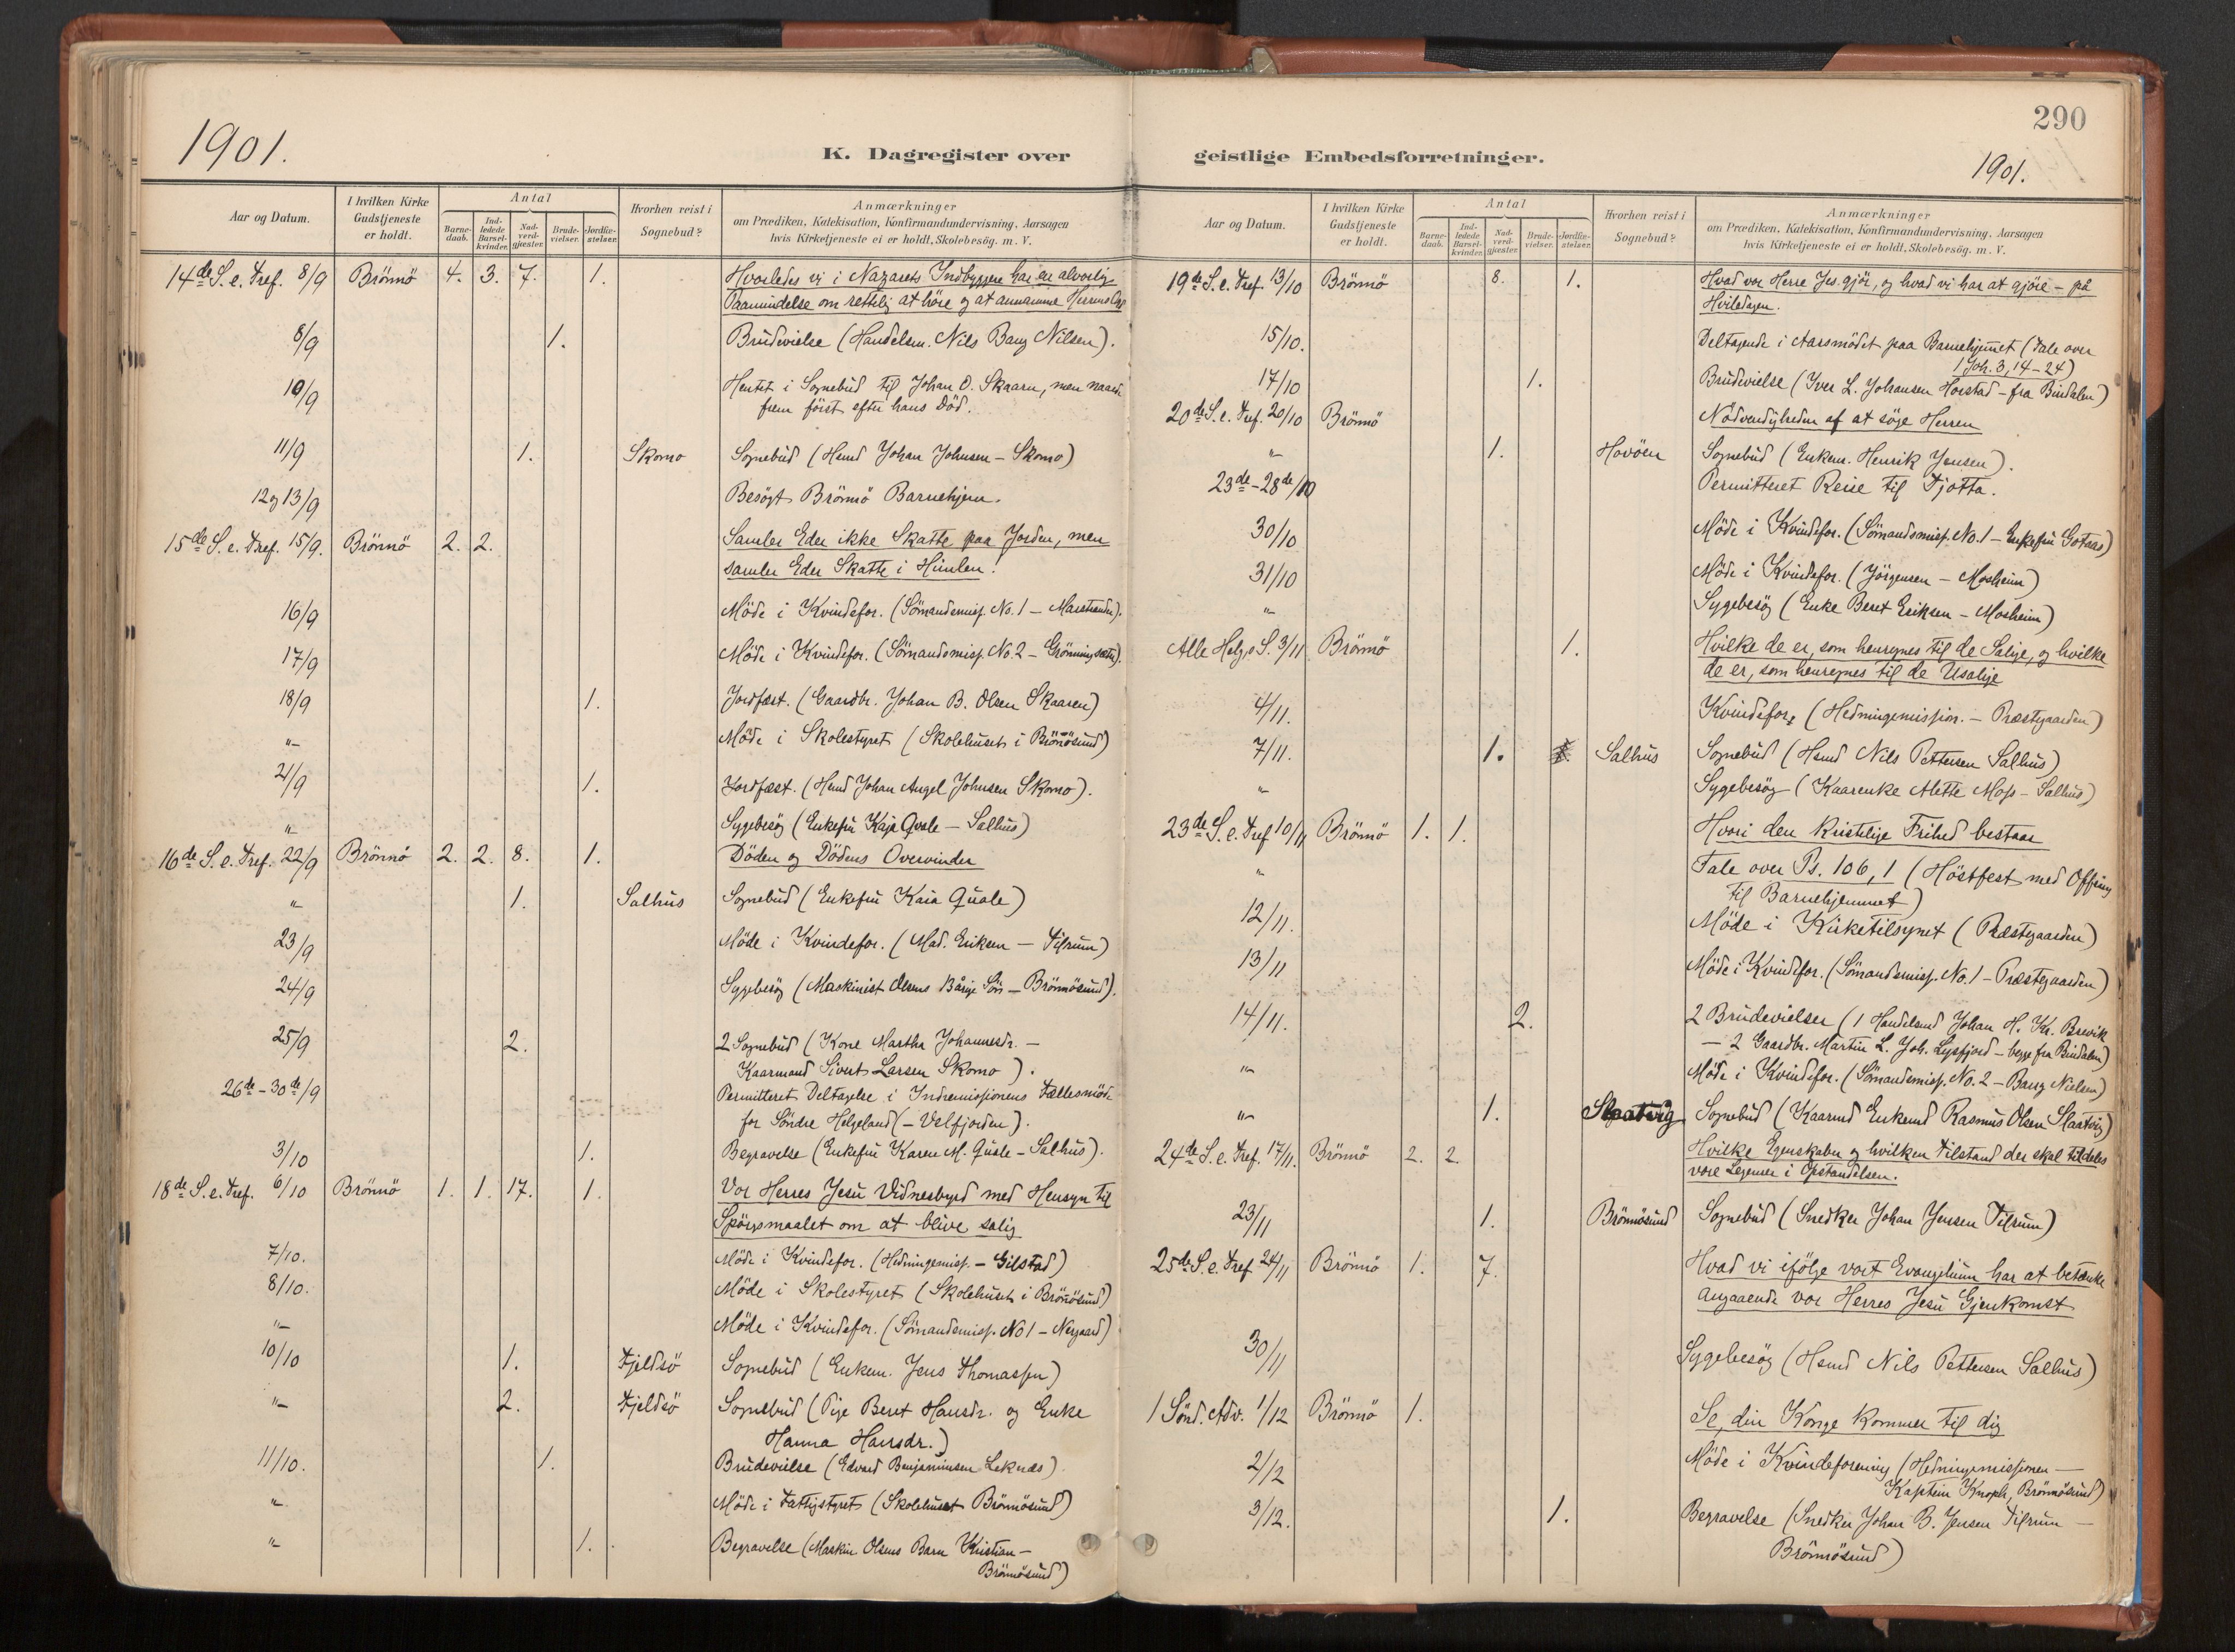 290
1901.
K. Dagregister over
geistlige Embedsforretninger.
1901.
Aar og Datum.
I hvilken Kirke Gudstjeneste er holdt.
Antal
Barne-daab.
Ind-ledede Barsel-kvinder.
Nad-verd-gjester.
Brude-vielser.
Jordfæ-stelser.
Hvorhen reist i Sognebud?
Anmærkninger
om Prædiken, Katekisation, Konfirmandundervisning, Aarsagen
hvis Kirketjeneste ei er holdt, Skolebesøg. m. V.
14de S. e. Tref. 8/9 Brönnö 4. 3. 7. 1. Hvorledes vi i Nazarets Indbyggere har en alvorlig
Paamindelse om rettelig at höre og at annamme Herrens
8/9 1. Brudevielse (Handelsm. Nils Bang Nilsen).
10/9 Hentet i Sognebud til Johan O. Skaaren, men naaede
frem först efter hans Död.
11/9 1. Skomo Sognebud (Hsmd Johan Johnsen – Skomo)
12 og 13/9 Besögt Brönnö Barnehjem.
15de S. e. Tref. 15/9. Brönnö 2. 2. Samler Eder ikke Skatte paa Jorden, men
samler Eder Skatte i Himlen!
16/9 Möde i Kvindefor. (Sömandsmisj. No. 1 – Marstrander).
17/9 Möde i Kvindefor. (Sömandsmisj. No. 2 – Grönningsæter).
18/9 1. Jordfæst. (Gaardbr. Johan B. Olsen Skaaren)
"– Möde i Skolestyret (Skolehuset i Brönösund)
21/9 1. Jordfæst. (Hsmd Johan Angel Johnsen Skomo).
"– Sygebesög (Enkefru Kaja Qvale – Salhus)
16de S. e. Tref. 22/9 Brönnö 2. 2. 8. 1. Döden og Dödens Overvinder
"– 1. Salhus Sognebud (Enkefru Kaia Quale)
23/9 Möde i Kvindefor. (Mad. Eriksen – Tilrum)
24/9 Sygebesög (Maskinist Olsens Sön – Brönnösund).
25/9 2. 2 Sognebud (Kone Martha Johannesdr. –
Kaarmand Sivert Larsen Skomo).
26de – 30de/9 Permitteret Deltagelse i Indremissjonens Fællesmöde
for Söndre Helgeland (– Velfjorden).
3/10 1. Begravelse (Enkefru Karen M. Quale – Salhus).
18de S. e. Tref. 6/10 Brönnö 1. 1. 17. 1. Vor Herres Jesu Vidnesbyrd med Hensyn til
Spörgsmaalet om at blive salig
7/10. Möde i Kvindefor. (Hedningemisj. – Gilstad)
8/10. Möde i Skolestyret (Skolehuset i Brönösund)
"– Möde i Kvindefor. (Sömandsmisj. No 1 – Nergaard)
10/10 1. Fjeldsö Sognebud (Enkem. Jens Thomassen)
"– 2. Fjeldsö Sognebud (Pige Beret Hansdr. og Enke
Hanna Hansdr.)
11/10. 1. Brudevielse (Edvard Benjaminsen Leknæs)
"– Möde i Fattigstyret (Skolehuset Brönnösund)
"– 1. Begravelse (Maskin. Olsens Barn Kristian –
Brönnösund)
Aar og Datum.
I hvilken Kirke Gudstjeneste er holdt.
Antal
Barne-daab.
Ind-ledede Barsel-kvinder.
Nad-verd-gjester.
Brude-vielser.
Jordfæ-stelser.
Hvorhen reist i Sognebud?
Anmærkninger
om Prædiken, Katekisation, Konfirmandundervisning, Aarsagen
hvis Kirketjeneste ei er holdt, Skolebesøg. m. V.
19de S. e. Tref. 13/10 Brönnö 8. 1. Hvad vor Herre Jes. gjör, og hvad vi har at gjöre – på
Hviledagen.
15/10. Deltagende i Aarsmödet paa Barnehjemmet (Tale over
1 Joh. 3, 14–24)
17/10 1. Brudevielse (Iver L. Johansen Horstad – fra Bindalen)
20de S. e. Tref. 20/10 Brönnö Nödvendigheden af at söge Herren
"– 1. Havöen Sognebud (Enkem. Henrik Jensen).
23de – 28de/10 Permitteret Reise til Tjötta.
30/10 Möde i Kvindefor. (Sömandsmisj. No. 1 – Enkefru Gotaas)
31/10 Möde i Kvindefor. (Jörgensen – Mosheim)
"– Sygebesög (Enke Beret Eriksen – Mosheim)
Alle Helg. S. 3/11 Brönnö 1. Hvilke de er, som henregnes til de Salige, og hvilke
de er, som henregnes til de Usalige
4/11. Kvindefor. (Hedningemissjon. – Præstegaarden)
7/11. 1. Salhus Sognebud (Hsmd Nils Pettersen Salhus)
"– Sygebesög (Kaarenke Alette Moss – Salhus)
23de S. e. Tref 10/11 Brönnö 1. 1. Hvori den kristelige Frihed bestaar
"– Tale over Ps. 106, 1 (Höstfest med Offring
til Barnehjemmet)
12/11. Möde i Kirketilsynet (Præstegaarden)
13/11 Möde i Kvindefor. (Sömandsmisj. No. 1 – Præstegaarden)
14/11. 2. 2 Brudevielser (1 Handelsmd Johan H. Kr. Brevik
– 2 Gaardbr. Martin L. Joh. Lysfjord – begge fra Bindalen)
"– Möde i Kvindefor. (Sömandsmisj. No. 2 – Bang Nielsen)
"– 1. Slaatvig Sognebud (Kaarmd Enkemd Rasmus Olsen Slaatvig)
24de S. e. Tref. 17/11. Brönnö 2. 2. Hvilke Egenskaber og hvilken Tilstand der skal tildeles
vore Legemer i Opstandelsen.
23/11 1. Brönnösund Sognebud (Snedker Johan Jensen Tilrum)
25de S. e. Tref 24/11 Brönnö 1. 7. Hvad vi ifölge vort Evangelium har at betænke
angaaende vor Herres Jesu Gjenkomst
30/11 Sygebesög (Hsmd Nils Pettersen Salhus)
1 Sönd. Adv. 1/12 Brönnö 1. Se, din Konge kommer til dig
2/12 Möde i Kvindeforening (Hedningemissjonen –
Kaptein Knoph, Brönnösund)
3/12. 1. Begravelse (Snedker Johan B. Jensen Tilrum –
Brönnösund)